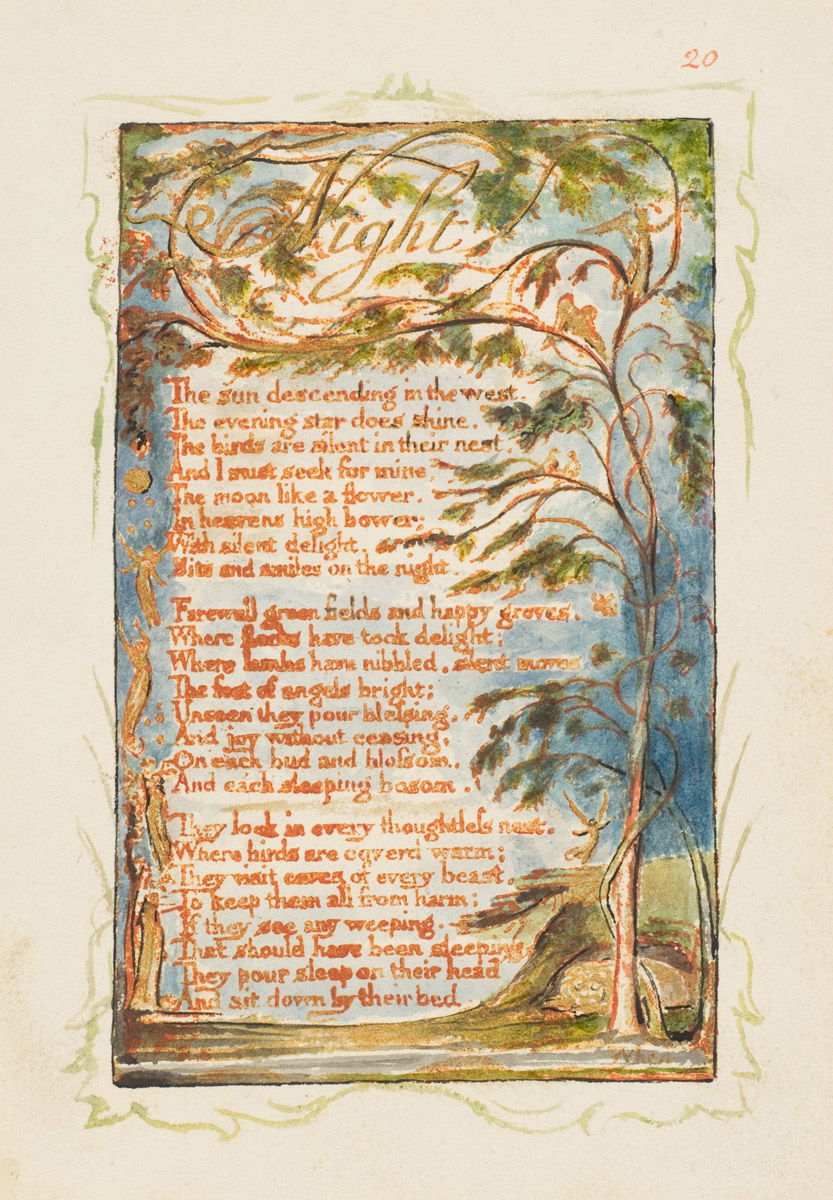 20
Night
The sun descending in the west.
The evening star does shine.
The birds are silent in their nest.
And I must seek for mine.
The moon like a flower.
In heavens high bower;
With silent delight.
Sits and smiles on the night.
Farewell green fields and happy groves.
Where flocks have took delight;
Where lambs have nibbled, silent moves
The feet of angels bright;
Unseen they pour blessing.
And joy without ceasing.
On each bud and blossom.
And each sleeping bosom.
They look in every thoughtless nest.
Where birds are coverd warm;
They visit caves of every beast.
To keep them all from harm;
If they see any weeping.
That should have been sleeping
They pour sleep on their head
And sit down by their bed
When